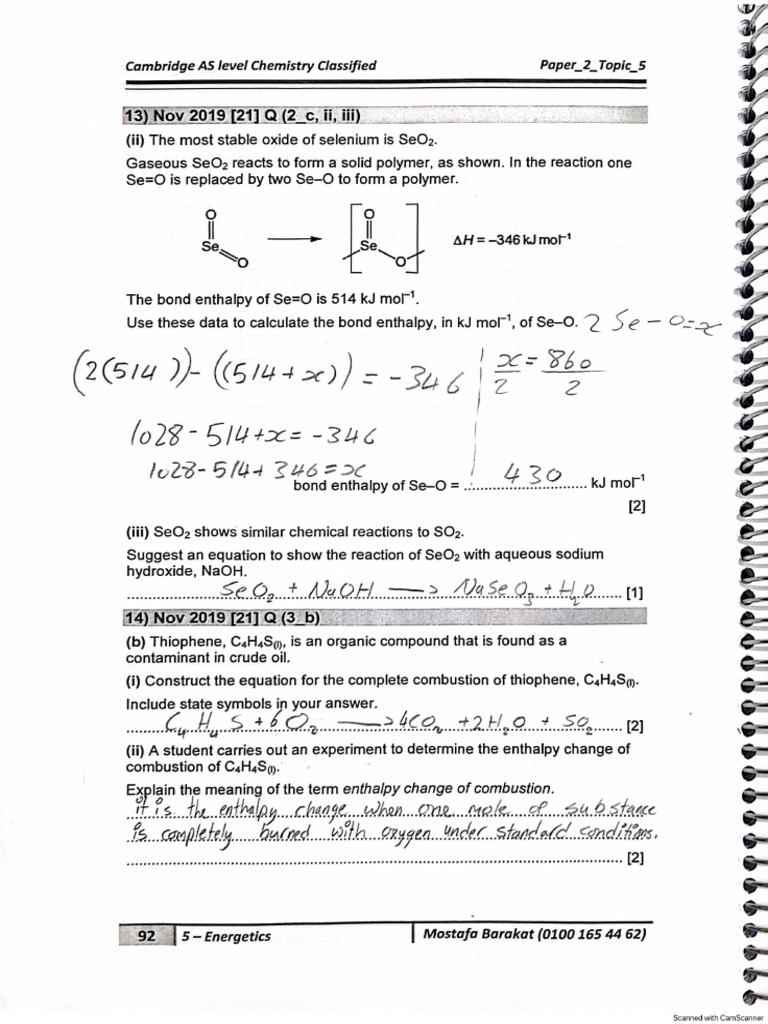 Cambridge AS level Chemistry Classified Paper_2_Topic_5
13) Nov 2019 [21] Q (2_c, ii, iii)
(ii) The most stable oxide of selenium is SeO₂.
Gaseous SeO₂ reacts to form a solid polymer, as shown. In the reaction one
Se=O is replaced by two Se–O to form a polymer.
O O
Se Se ΔH = –346 kJ mol⁻¹
O O
The bond enthalpy of Se=O is 514 kJ mol⁻¹.
Use these data to calculate the bond enthalpy, in kJ mol⁻¹, of Se–O. 2 Se – O = x
(2(514)) - ((514 + x)) = -346 x/2 = 860/2
1028 - 514 + x = -346
1028 - 514 + 346 = x
bond enthalpy of Se–O = 430 kJ mol⁻¹
[2]
(iii) SeO₂ shows similar chemical reactions to SO₂.
Suggest an equation to show the reaction of SeO₂ with aqueous sodium
hydroxide, NaOH.
SeO₂ + NaOH → NaSeO₃ + H₂O [1]
14) Nov 2019 [21] Q (3_b)
(b) Thiophene, C₄H₄S(l), is an organic compound that is found as a
contaminant in crude oil.
(i) Construct the equation for the complete combustion of thiophene, C₄H₄S(l).
Include state symbols in your answer.
C₄H₄S + 6O₂ → 4CO₂ + 2H₂O + SO₂ [2]
(ii) A student carries out an experiment to determine the enthalpy change of
combustion of C₄H₄S(l).
Explain the meaning of the term enthalpy change of combustion.
it is the enthalpy change when one mole of substance
is completely burned with oxygen under standard conditions.
[2]
92 5 – Energetics Mostafa Barakat (0100 165 44 62)
Scanned with CamScanner